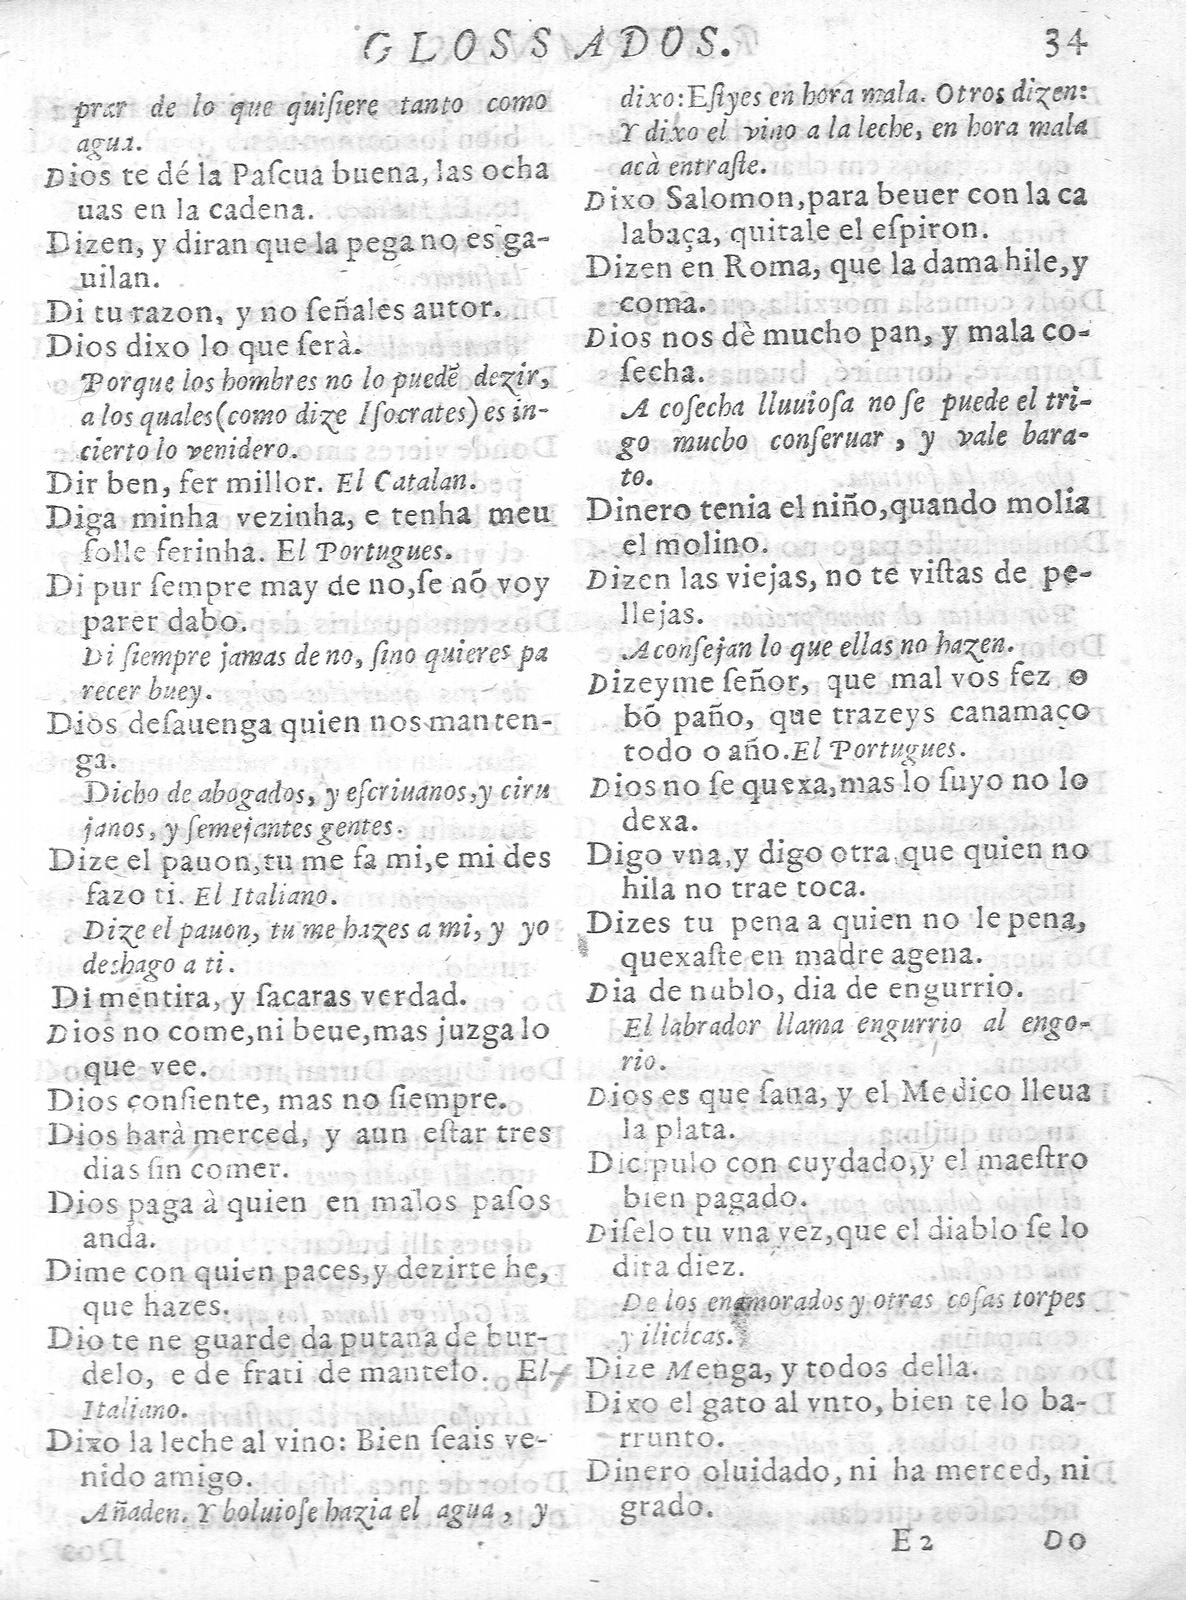 GLOSSADOS. 34
prar de lo que quiſiere tanto como
agua.
Dios te dé la Paſcua buena, las ocha
uas en la cadena.
Dizen, y diran que la pega no es ga-
uilan.
Di tu razon, y no ſeñales autor.
Dios dixo lo que ſerà.
Porque los hombres no lo puedẽ dezir,
a los quales (como dize Iſocrates) es in-
cierto lo venidero.
Dir ben, fer millor. El Catalan.
Diga minha vezinha, e tenha meu
folle ferinha. El Portugues.
Di pur ſempre may de no, ſe nõ voy
parer dabo.
Di ſiempre jamas de no, ſino quieres pa
recer buey.
Dios deſauenga quien nos manten-
ga.
Dicho de abogados, y eſcriuanos, y ciru
janos, y ſemejantes gentes.
Dize el pauon, tu me fa mi, e mi des
fazo ti. El Italiano.
Dize el pauon, tu me hazes a mi, y yo
deshago a ti.
Di mentira, y ſacaras verdad.
Dios no come, ni beue, mas juzga lo
que vee.
Dios conſiente, mas no ſiempre.
Dios harà merced, y aun eſtar tres
dias ſin comer.
Dios paga à quien en malos paſos
anda.
Dime con quien paces, y dezirte he,
que hazes.
Dio te ne guarde da putana de bur-
delo, e de frati de mantelo. El
Italiano.
Dixo la leche al vino: Bien ſeais ve-
nido amigo.
Añaden. Y boluioſe hazia el agua, y
dixo: Eſtyes en hora mala. Otros dizen:
Y dixo el vino a la leche, en hora mala
acà entraſte.
Dixo Salomon, para beuer con la ca
labaça, quitale el eſpiron.
Dizen en Roma, que la dama hile, y
coma.
Dios nos dè mucho pan, y mala co-
ſecha.
A coſecha lluuioſa no ſe puede el tri-
go mucho conſeruar, y vale bara-
to.
Dinero tenia el niño, quando molia
el molino.
Dizen las viejas, no te viſtas de pe-
llejas.
Aconſejan lo que ellas no hazen.
Dizeyme ſeñor, que mal vos fez o
bõ paño, que trazeys canamaço
todo o año. El Portugues.
Dios no ſe quexa, mas lo ſuyo no lo
dexa.
Digo vna, y digo otra, que quien no
hila no trae toca.
Dizes tu pena a quien no le pena,
quexaſte en madre agena.
Dia de nublo, dia de engurrio.
El labrador llama engurrio al engo-
rio.
Dios es que ſana, y el Medico lleua
la plata.
Dicipulo con cuydado, y el maeſtro
bien pagado.
Diſelo tu vna vez, que el diablo ſe lo
dira diez.
De los enamorados y otras coſas torpes
y ilicicas.
Dize Menga, y todos della.
Dixo el gato al vnto, bien te lo ba-
rrunto.
Dinero oluidado, ni ha merced, ni
grado.
E 2 DO